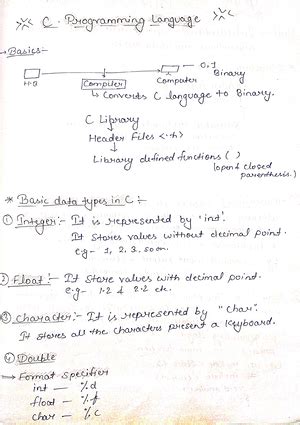 C Programming Language
→ Basics :-
0,1
H.Q Computer Computer Binary
↳ Converts C language to Binary.
C Library
↓
Header Files <.h>
↓
Library defined functions ( )
(open & closed
parenthesis.)
* Basic data types in C :-
① Integer :- It is represented by 'int'.
It stores values without decimal point.
e.g- 1, 2, 3, so on.
② Float :- It store values with decimal point.
e.g- 1.2 & 2.2 etc.
③ Character :- It is represented by "char".
It stores all the characters present a Keyboard.
④ Double
→ Format specifier
int — %d
float — %f
char — %c